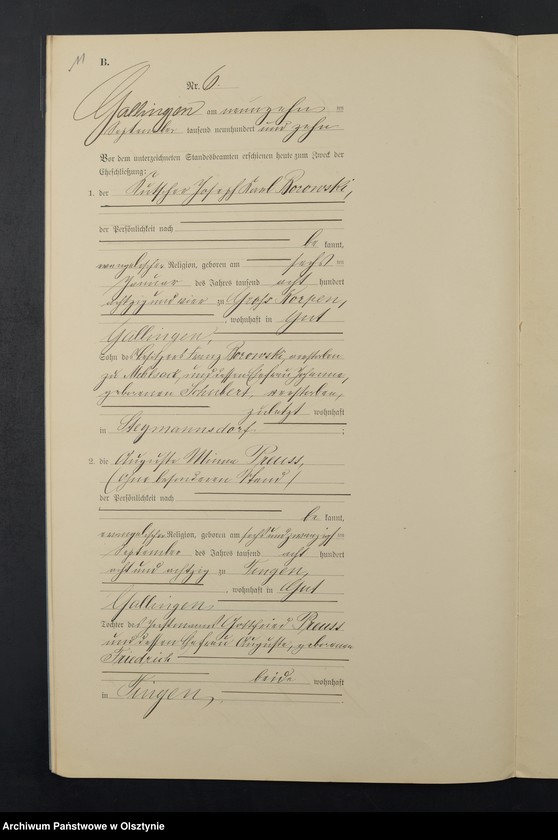 11
B.
Nr. 6.
Gallingen am neunzehn ten
September tausend neunhundert und zehn
Vor dem unterzeichneten Standesbeamten erschienen heute zum Zweck der
Eheschließung:
1. der Kutscher Joseph Karl Borowski,
der Persönlichkeit nach
be kannt,
evangelischer Religion, geboren am sechsten
Januar des Jahres tausend acht hundert
achtzig und vier zu Gross Körpen,
, wohnhaft in Gut
Gallingen,
Sohn des Besitzers Franz Borowski, verstorben
zu Mehlsack, und dessen Ehefrau Johanna,
geborenen Schubert, verstorben,
zuletzt wohnhaft
in Stegmannsdorf. ;
2. die Auguste Minna Preuss,
(ohne besonderen Stand)
der Persönlichkeit nach
be kannt,
evangelischer Religion, geboren am sechsundzwanzigsten
September des Jahres tausend acht hundert
acht und achtzig zu Tingen,
, wohnhaft in Gut
Gallingen,
Tochter des Instmanns Gottfried Preuss
und dessen Ehefrau Auguste, geborenen
Friedrich
beide wohnhaft
in Tingen, .
Archiwum Państwowe w Olsztynie